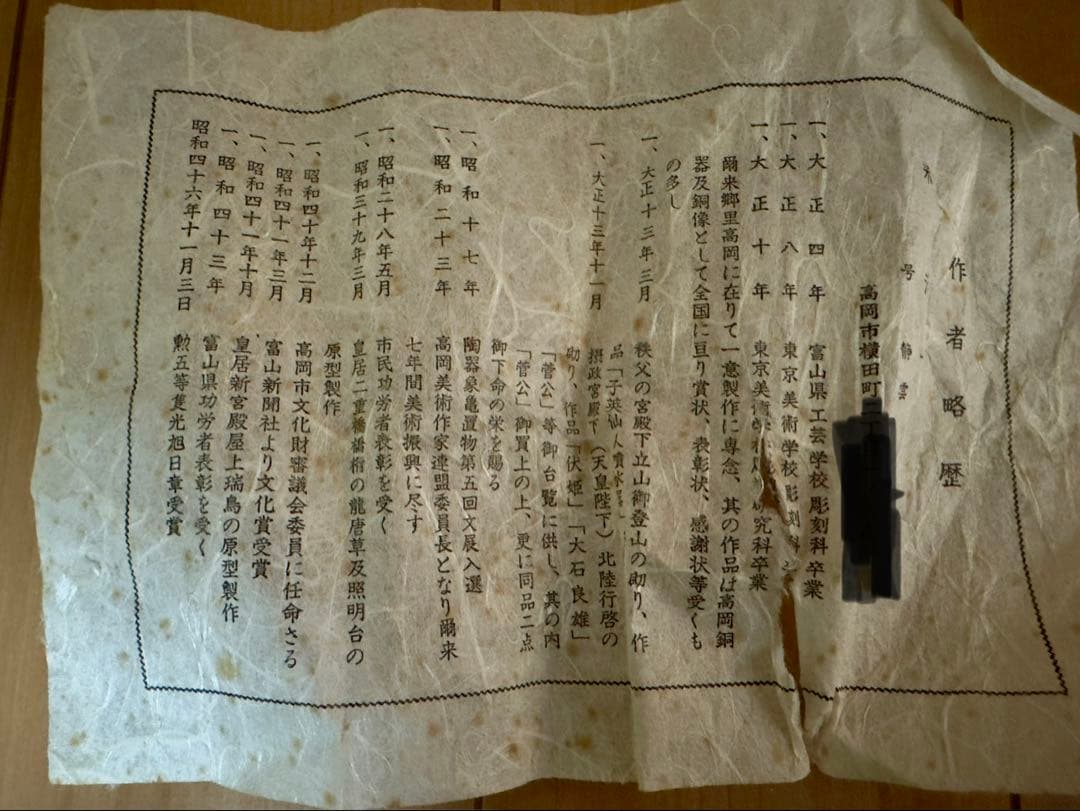 作者略歴
号
高岡市横田町
一、大正四年 富山県工芸学校彫刻科卒業
一、大正八年 東京美術学校彫刻科
一、大正十年 東京美術学校 研究科卒業
爾来郷里高岡に在りて一意製作に専念、其の作品は高岡銅
器及銅像として全国に亘り賞状、表彰状、感謝状等受くも
の多し
一、大正十三年三月 秩父の宮殿下立山御登山の砌り、作
品「子英仙人噴水器」
一、大正十三年十一月 摂政宮殿下(天皇陛下)北陸行啓の
砌り、作品「伏姫」「大石良雄」
「菅公」等御台覧に供し、其の内
「菅公」御買上の上、更に同品二点
御下命の栄を賜る
一、昭和十七年 陶器象亀置物第五回文展入選
一、昭和二十三年 高岡美術作家連盟委員長となり爾来
七年間美術振興に尽す
一、昭和二十八年五月 市民功労者表彰を受く
一、昭和三十九年三月 皇居二重橋橋桁の龍唐草及照明台の
原型製作
一、昭和四十年十二月 高岡市文化財審議会委員に任命さる
一、昭和四十一年三月 富山新聞社より文化賞受賞
一、昭和四十一年十月 皇居新宮殿屋上瑞鳥の原型製作
一、昭和四十三年 富山県功労者表彰を受く
昭和四十六年十一月三日 勲五等隻光旭日章受賞